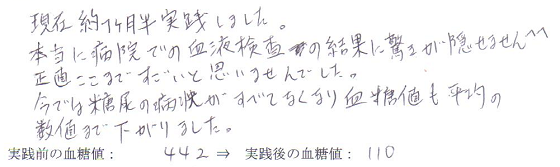 現在約1ヶ月半実践しました。
本当に病院での血液検査の結果に驚きが隠せません^^
正直ここまですごいと思いませんでした。
今では糖尿の病状がすべてなくなり血糖値も平均の
数値まで下がりました。
実践前の血糖値： 442 ⇒ 実践後の血糖値： 110